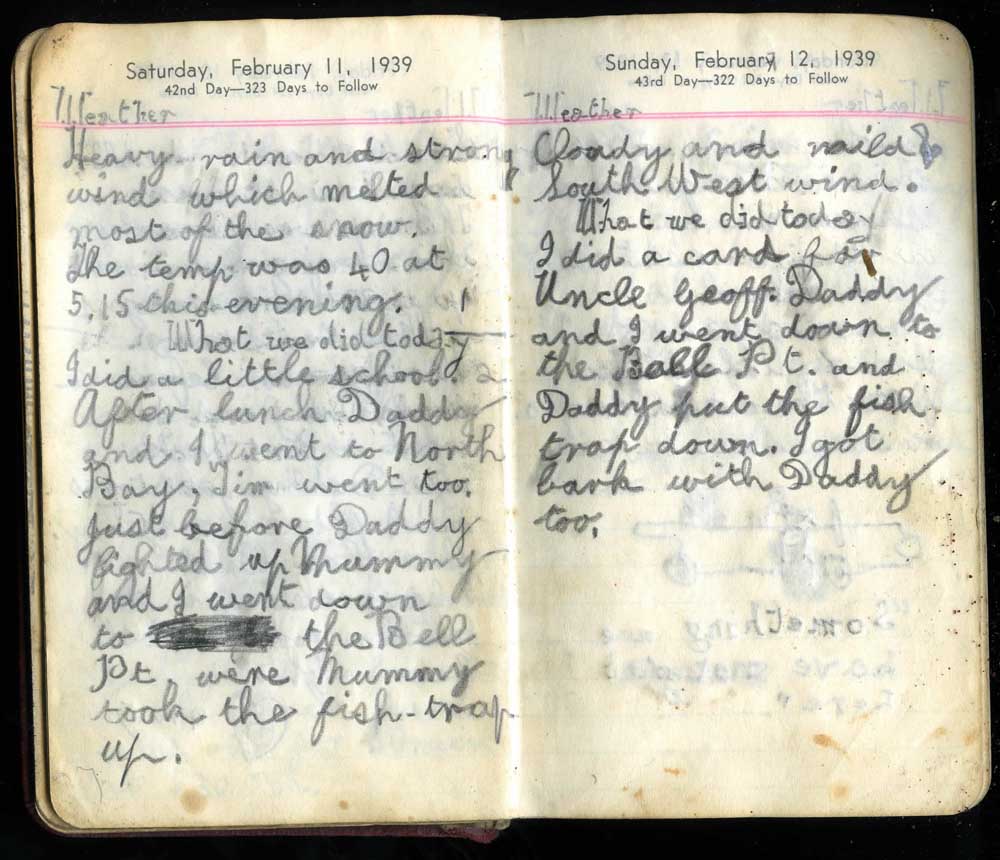 Saturday, February 11, 1939
42nd Day—323 Days to Follow
Weather
Heavy rain and strong
wind which melted
most of the snow.
The temp was 40 at
5,15 this evening.
What we did today
I did a little school.
After lunch Daddy
and I went to North
Bay, Tim went too.
Just before Daddy
lighted up Mummy
and I went down
to the Bell
Pt. were Mummy
took the fish-trap
up.
Sunday, February 12, 1939
43rd Day—322 Days to Follow
Weather
Cloady and maild
South West wind.
What we did today
I did a card for
Uncle Geoff. Daddy
and I went down to
the Bell Pt. and
Daddy put the fish
trap down. I got
bark with Daddy
too.